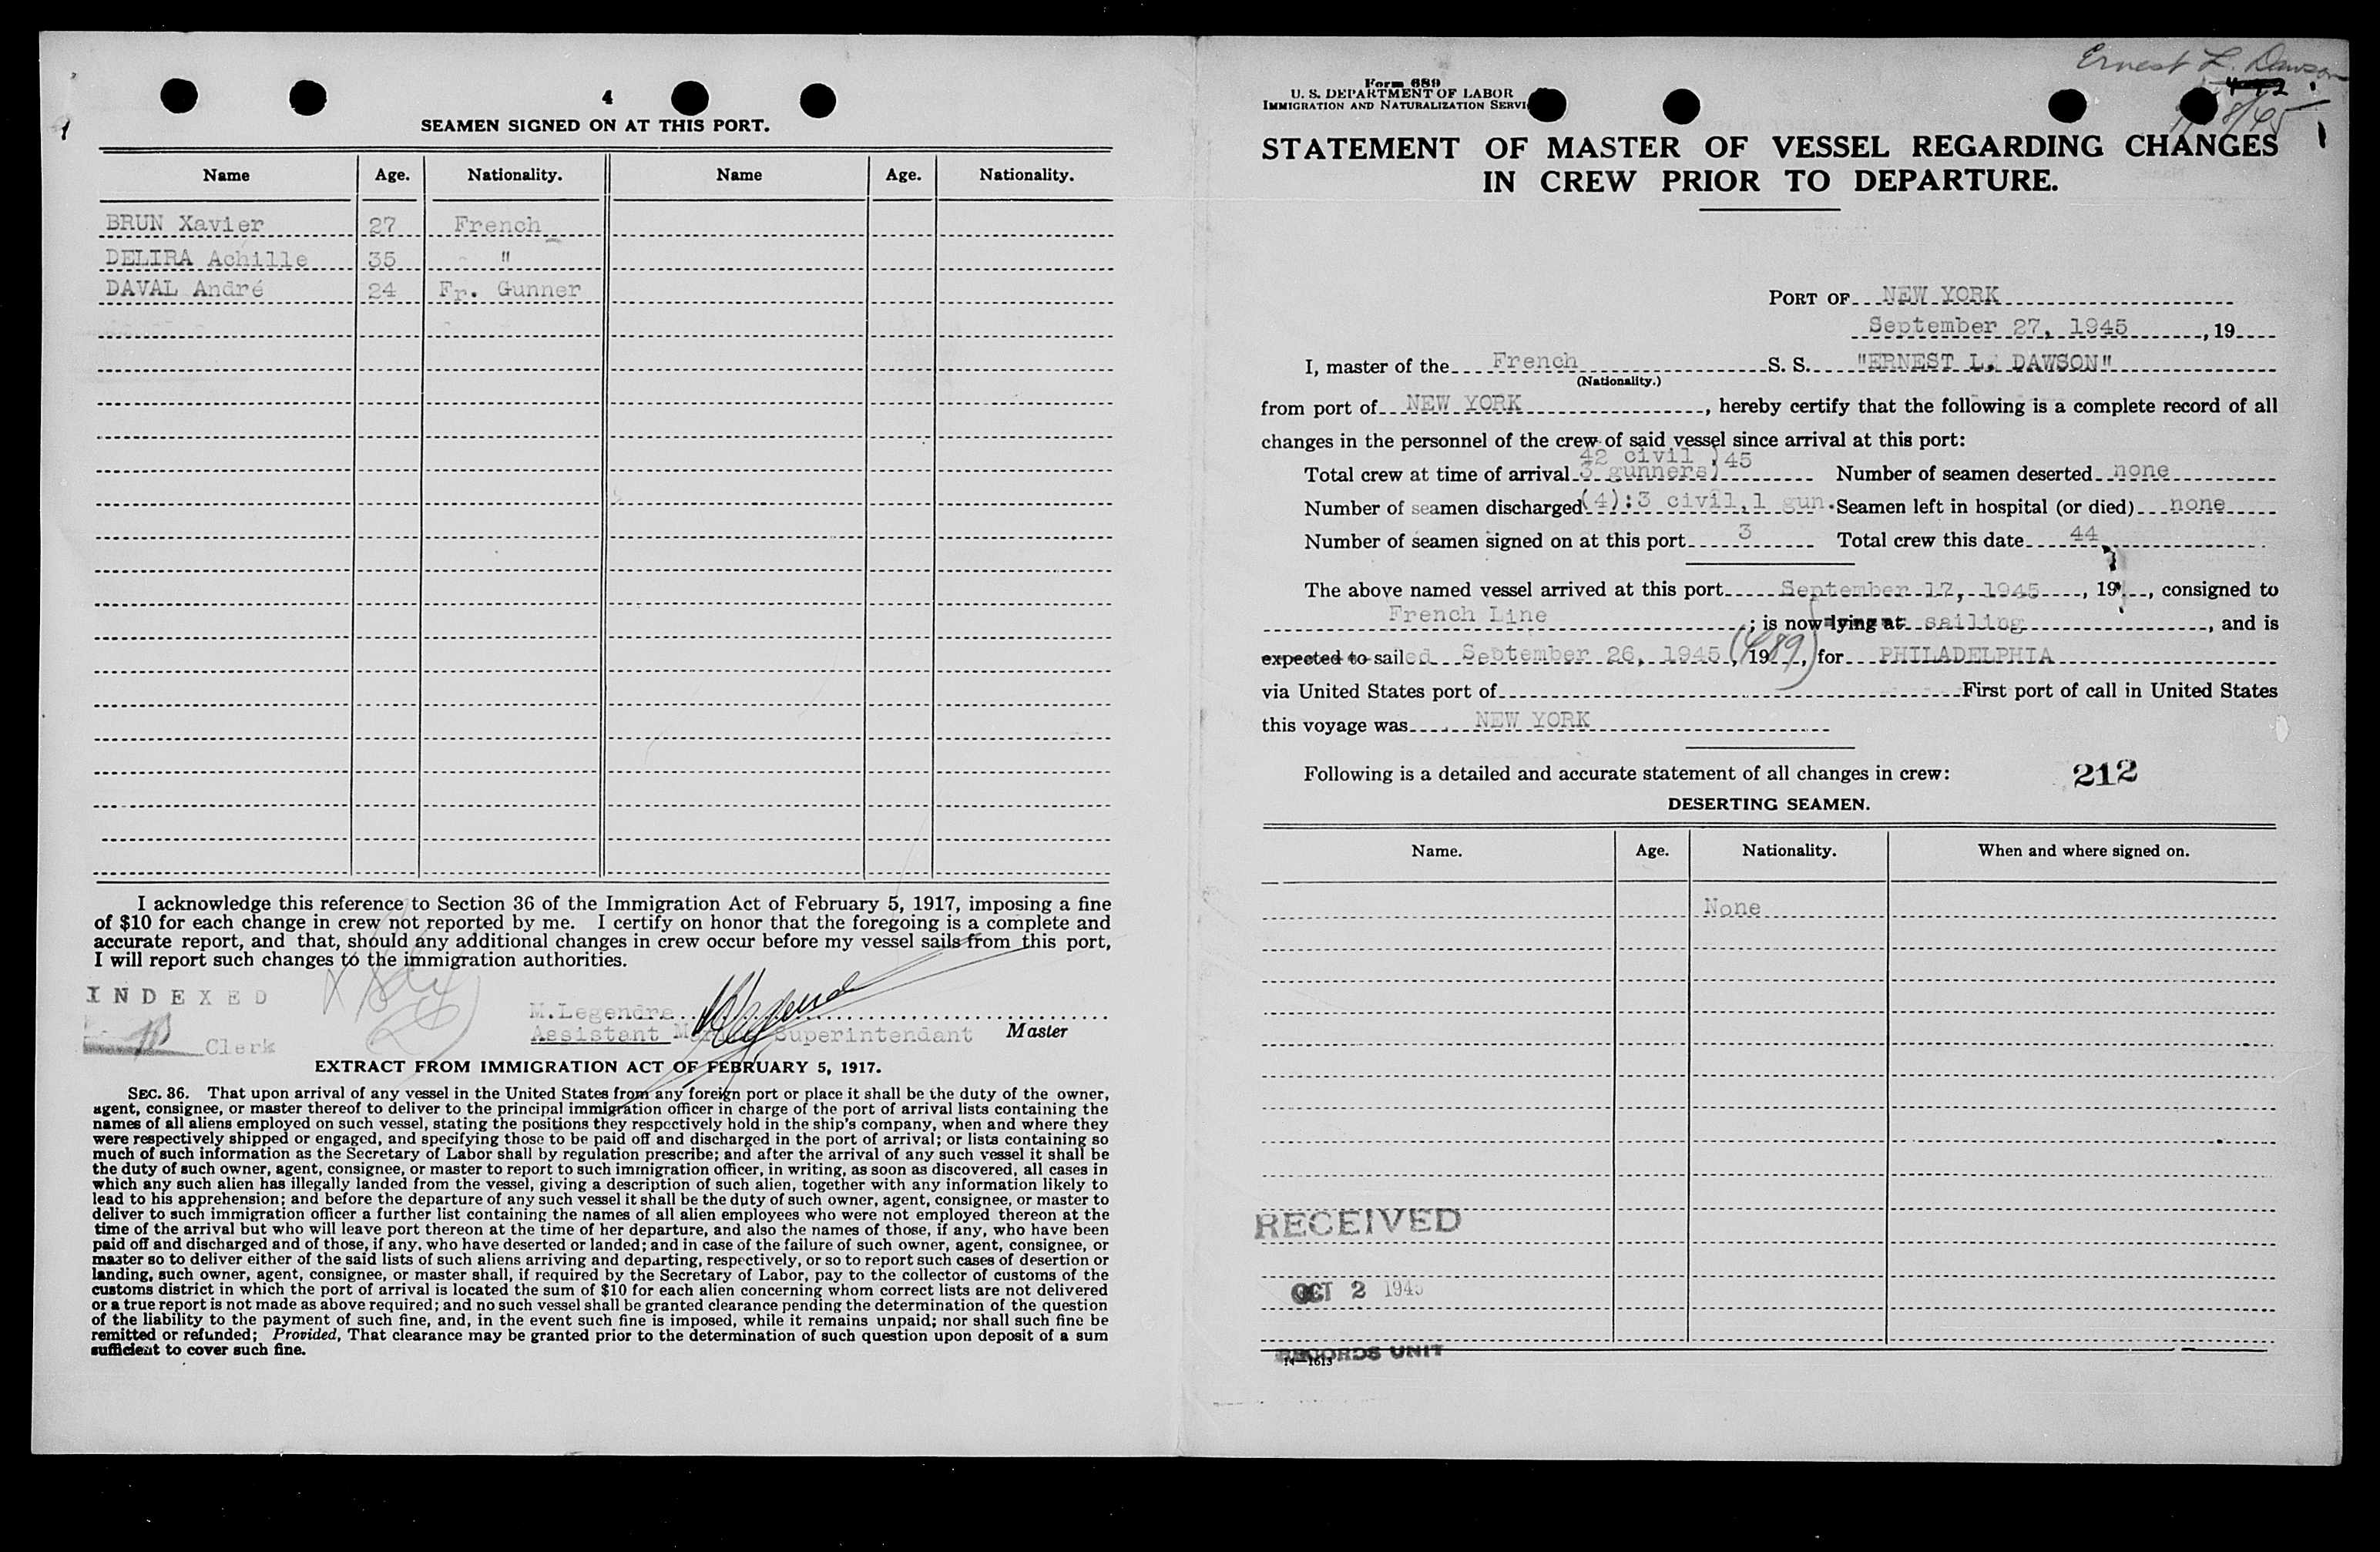 4
SEAMEN SIGNED ON AT THIS PORT.
Name Age. Nationality. Name Age. Nationality.
BRUN Xavier 27 French
DELIRA Achille 35 "
DAVAL André 24 Fr. Gunner
I acknowledge this reference to Section 36 of the Immigration Act of February 5, 1917, imposing a fine
of $10 for each change in crew not reported by me. I certify on honor that the foregoing is a complete and
accurate report, and that, should any additional changes in crew occur before my vessel sails from this port,
I will report such changes to the immigration authorities.
INDEXED
Clerk
M.Legendre
Assistant Superintendant Master
EXTRACT FROM IMMIGRATION ACT OF FEBRUARY 5, 1917.
SEC. 36. That upon arrival of any vessel in the United States from any foreign port or place it shall be the duty of the owner,
agent, consignee, or master thereof to deliver to the principal immigration officer in charge of the port of arrival lists containing the
names of all aliens employed on such vessel, stating the positions they respectively hold in the ship's company, when and where they
were respectively shipped or engaged, and specifying those to be paid off and discharged in the port of arrival; or lists containing so
much of such information as the Secretary of Labor shall by regulation prescribe; and after the arrival of any such vessel it shall be
the duty of such owner, agent, consignee, or master to report to such immigration officer, in writing, as soon as discovered, all cases in
which any such alien has illegally landed from the vessel, giving a description of such alien, together with any information likely to
lead to his apprehension; and before the departure of any such vessel it shall be the duty of such owner, agent, consignee, or master to
deliver to such immigration officer a further list containing the names of all alien employees who were not employed thereon at the
time of the arrival but who will leave port thereon at the time of her departure, and also the names of those, if any, who have been
paid off and discharged and of those, if any, who have deserted or landed; and in case of the failure of such owner, agent, consignee, or
master so to deliver either of the said lists of such aliens arriving and departing, respectively, or so to report such cases of desertion or
landing, such owner, agent, consignee, or master shall, if required by the Secretary of Labor, pay to the collector of customs of the
customs district in which the port of arrival is located the sum of $10 for each alien concerning whom correct lists are not delivered
or a true report is not made as above required; and no such vessel shall be granted clearance pending the determination of the question
of the liability to the payment of such fine, and, in the event such fine is imposed, while it remains unpaid; nor shall such fine be
remitted or refunded; Provided, That clearance may be granted prior to the determination of such question upon deposit of a sum
sufficient to cover such fine.
Ernest L. Dawson
Form 689
U. S. DEPARTMENT OF LABOR
IMMIGRATION AND NATURALIZATION SERVI
STATEMENT OF MASTER OF VESSEL REGARDING CHANGES
IN CREW PRIOR TO DEPARTURE.
PORT OF NEW YORK
September 27, 1945, 19
I, master of the French S. S. "ERNEST L. DAWSON"
(Nationality.)
from port of NEW YORK, hereby certify that the following is a complete record of all
changes in the personnel of the crew of said vessel since arrival at this port:
42 civil ) 45
Total crew at time of arrival 3 gunners) Number of seamen deserted none
Number of seamen discharged (4):3 civil,1 gun. Seamen left in hospital (or died) none
Number of seamen signed on at this port 3 Total crew this date 44
The above named vessel arrived at this port September 17, 1945, 19, consigned to
French Line; is now lying at sailing, and is
expected to sailed September 26, 1945, 19, (489) for PHILADELPHIA
via United States port of First port of call in United States
this voyage was NEW YORK
Following is a detailed and accurate statement of all changes in crew: 212
DESERTING SEAMEN.
Name. Age. Nationality. When and where signed on.
None
RECEIVED
OCT 2 1945
RECORDS UNIT
14—1613